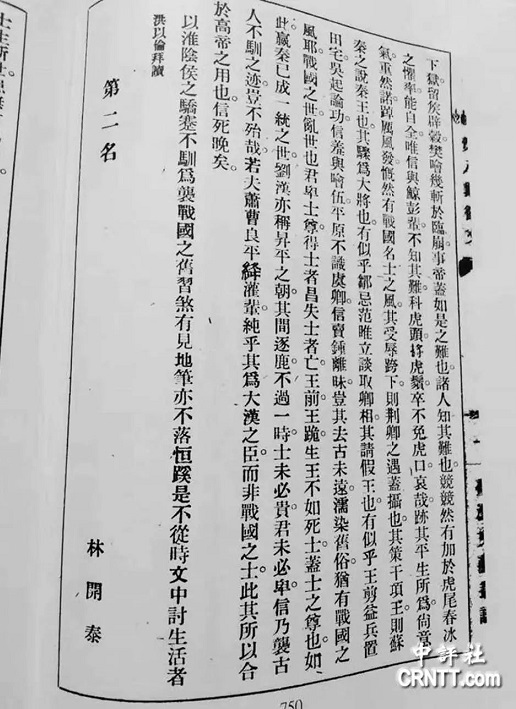 下獄留侯辟穀樊噲幾斬於臨崩事帝蓋如是之難也諸人知其難也兢兢然有加於虎尾春冰
之懼率能自全唯信與鯨彭輩不知其難科虎頭捋虎鬚卒不免虎口哀哉跡其平生所爲尙意
氣重然諾踔厲風發慨然有戰國名士之風其受辱跨下則荆卿之遇蓋攝也其策干項王則蘇
秦之說秦王也其驟爲大將也有似乎鄒忌范雎立談取卿相其請假王也有似乎王剪益兵置
田宅吳起論功信羞與噲伍平原不識虞卿信賣鍾離昧豈其去古未遠濡染舊俗猶有戰國之
風耶戰國之世亂世也君卑士尊得士者昌失士者亡王前王跪生王不如死士蓋士之尊也如
此嬴秦已成一統之世劉漢亦稱昇平之朝其間逐鹿不過一時士未必貴君未必卑信乃襲古
人不馴之迹豈不殆哉若夫蕭曹良平絳灌輩純乎其爲大漢之臣而非戰國之士此其所以合
於高帝之用也信死晚矣。
以淮陰侯之驕蹇不馴爲襲戰國之舊習煞有見地筆亦不落恒蹊是不從時文中討生活者
洪以倫拜讀
第二名 林開泰
750
中評社
CRNTT.com